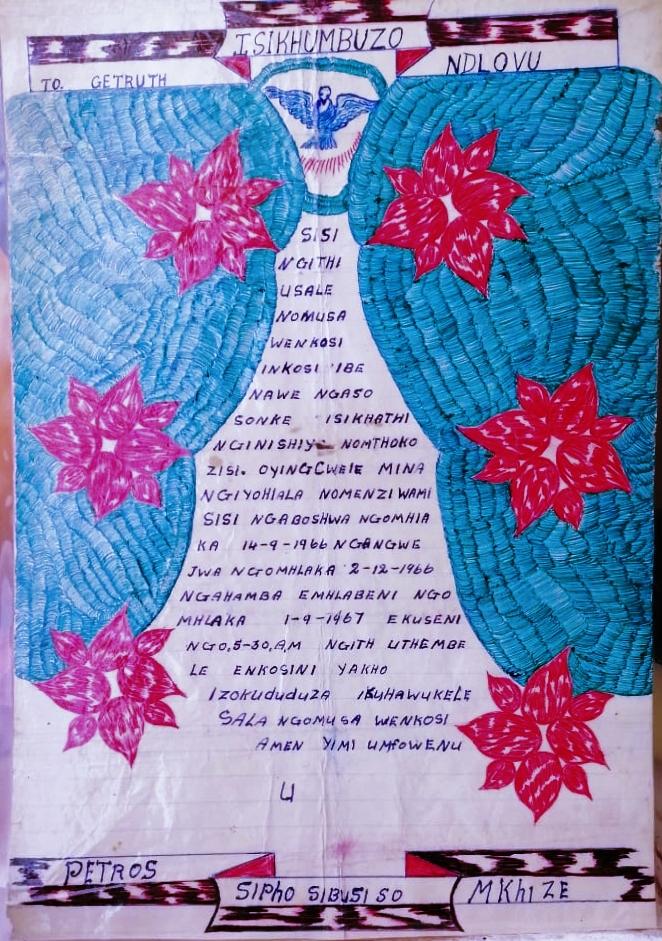 ISIKHUMBUZO
TO. GETRUTH NDLOVU
SISI
NGITHI
USALE
NOMUSA
WENKOSI
INKOSI IBE
NAWE NGASO
SONKE ISIKHATHI
NGINISHIYA NOMTHOKO
ZISI. OYINGCWELE MINA
NGIYOHLALA NOMENZI WAMI
SISI NGABOSHWA NGOMHLA
KA 14-9-1966 NGANGWE
JWA NGOMHLAKA 2-12-1966
NGAHAMBA EMHLABENI NGO
MHLAKA 1-9-1967 EKUSENI
NGO,5-30,AM NGITH UTHEMBE
LE ENKOSINI YAKHO
IZOKUDUDUZA IKUHAWUKELE
SALA NGOMUSA WENKOSI
AMEN YIMI UMFOWENU
U
PETROS
SIPHO SIBUSISO MKHIZE